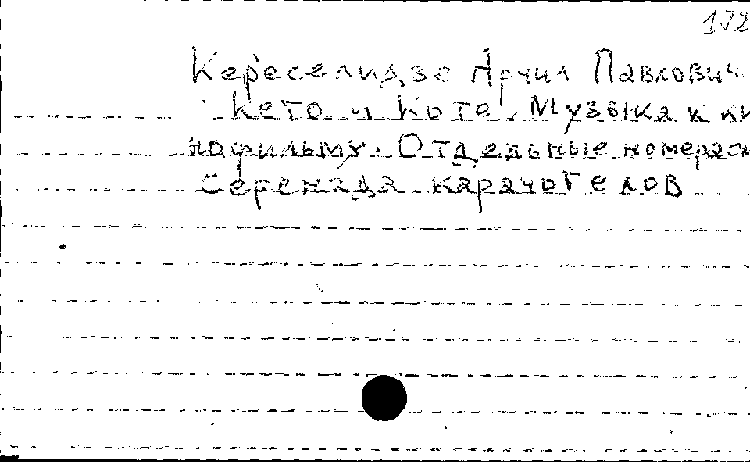 132
Кереселидзе Арчил Павлович
Кето и Котэ. Музыка к ки
нофильму. Отдельные номера.
Серенада карачогелов